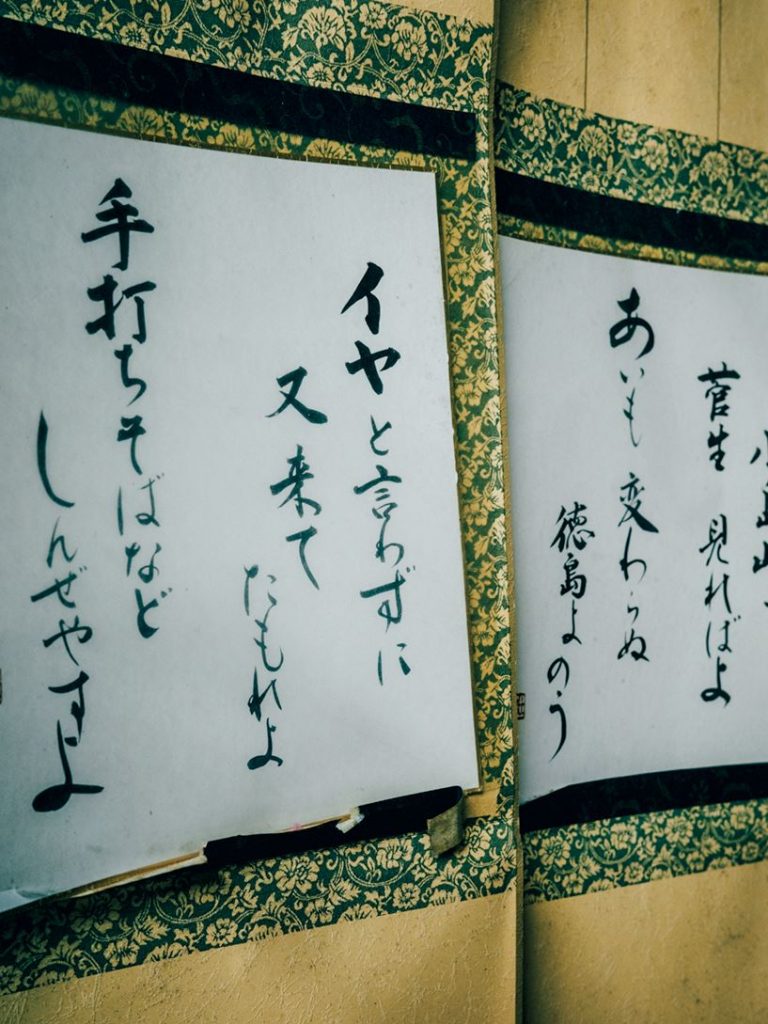 菅生 見ればよ
あいも変わらぬ
徳島よのう
イヤと言わずに
又来て
たもれよ
手打ちそばなど
しんぜやすよ